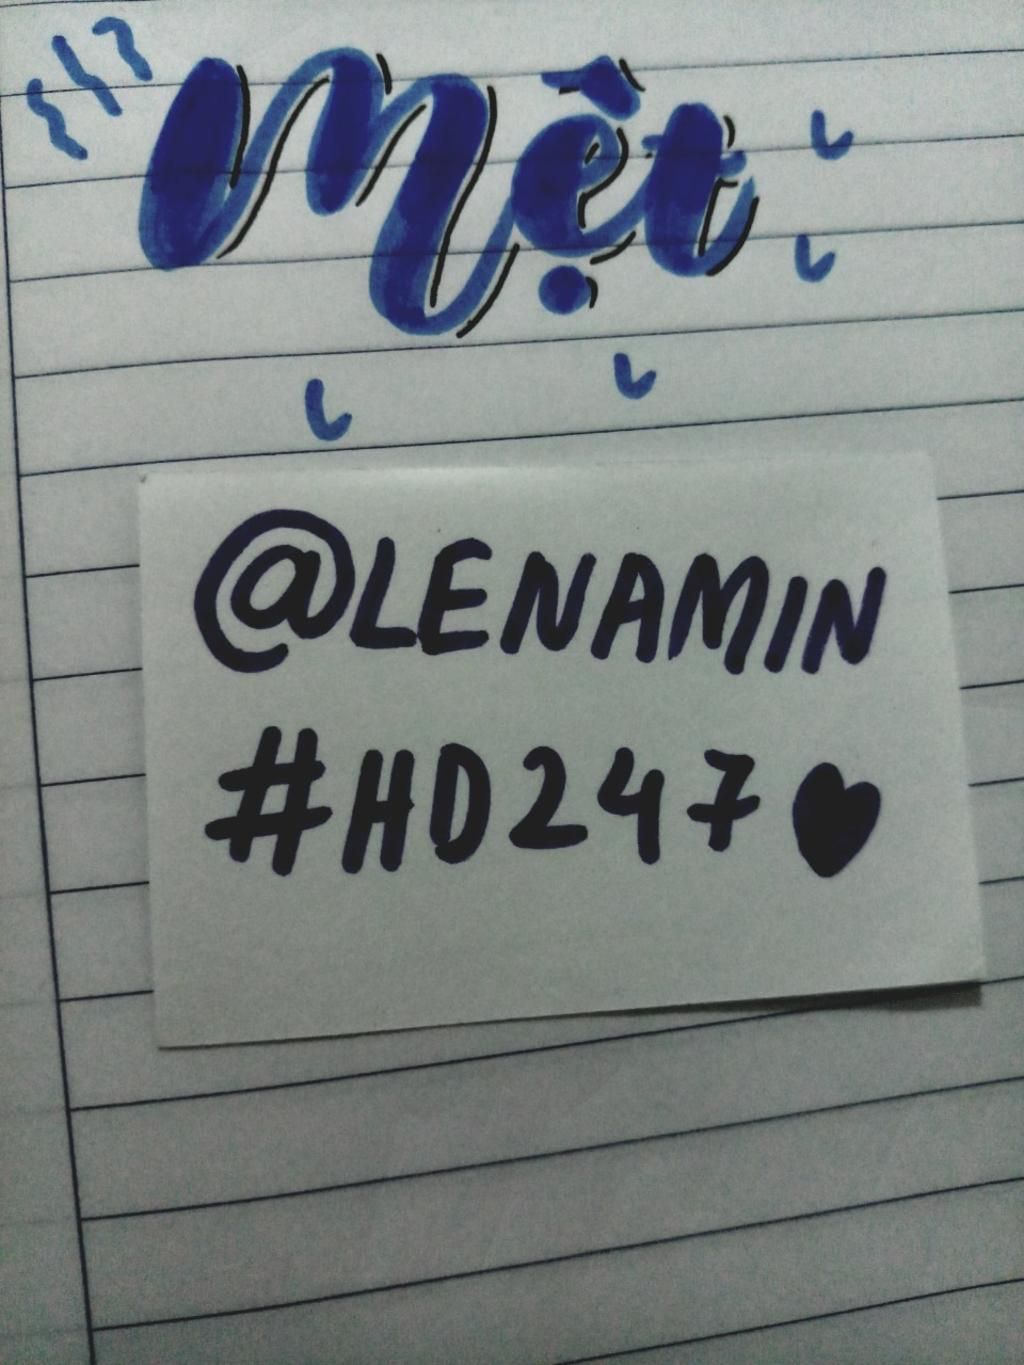 Mệt
@LENAMIN
#HD247♥